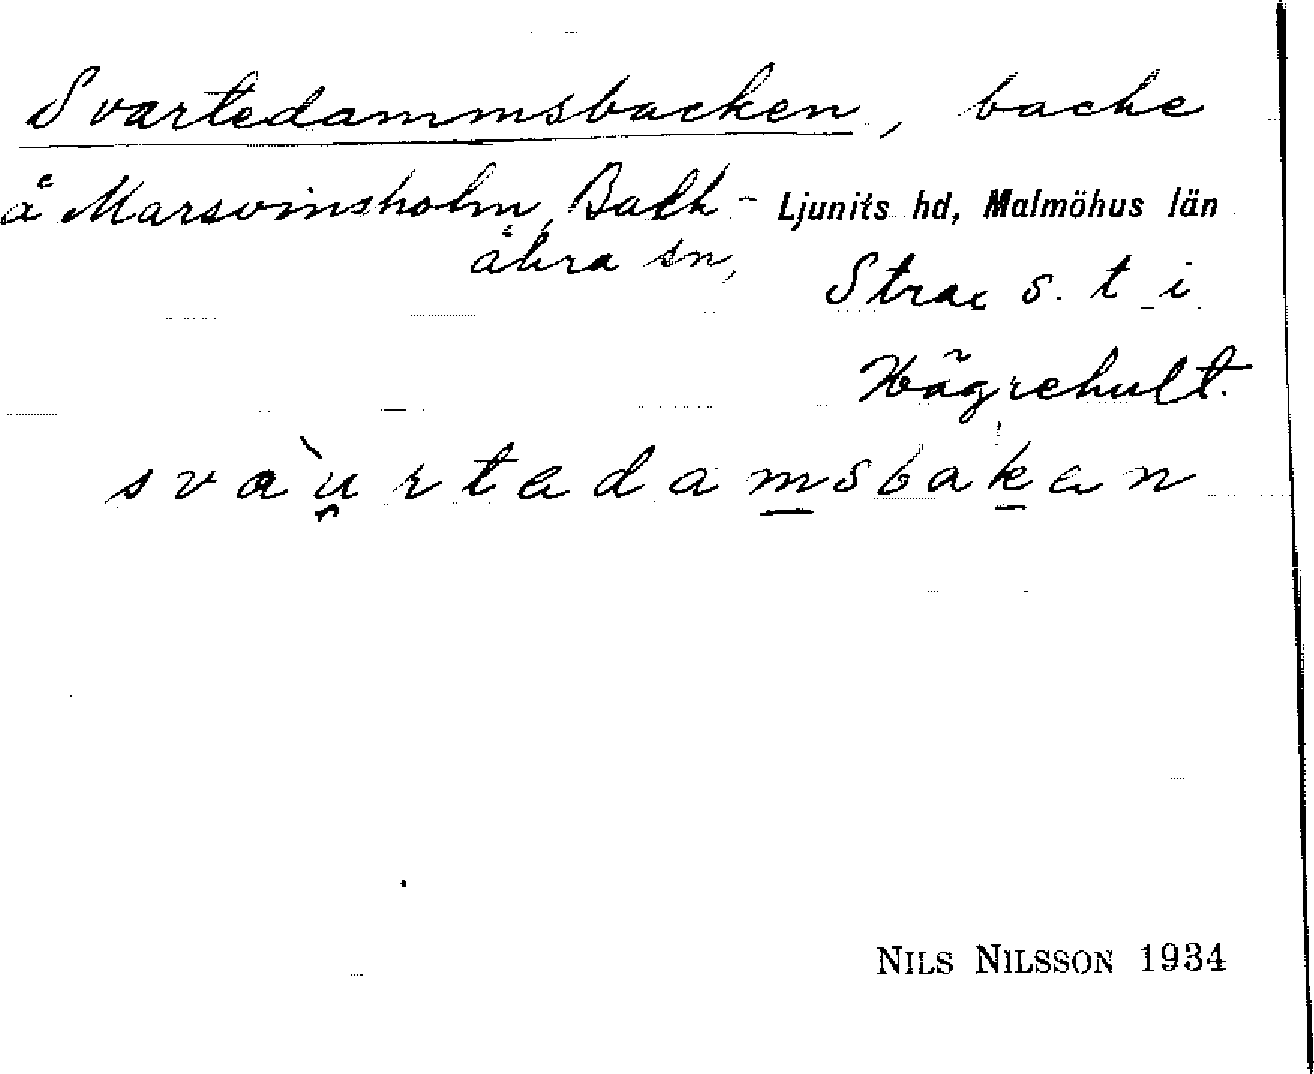 Svartedammsbacken, backe
å Marsvinsholm, Balk- Ljunits hd, Malmöhus län
åkra sn,
Strax s. t i
Hägrehult.
svàu̯rtadam̲sbak̲an
NILS NILSSON 1934